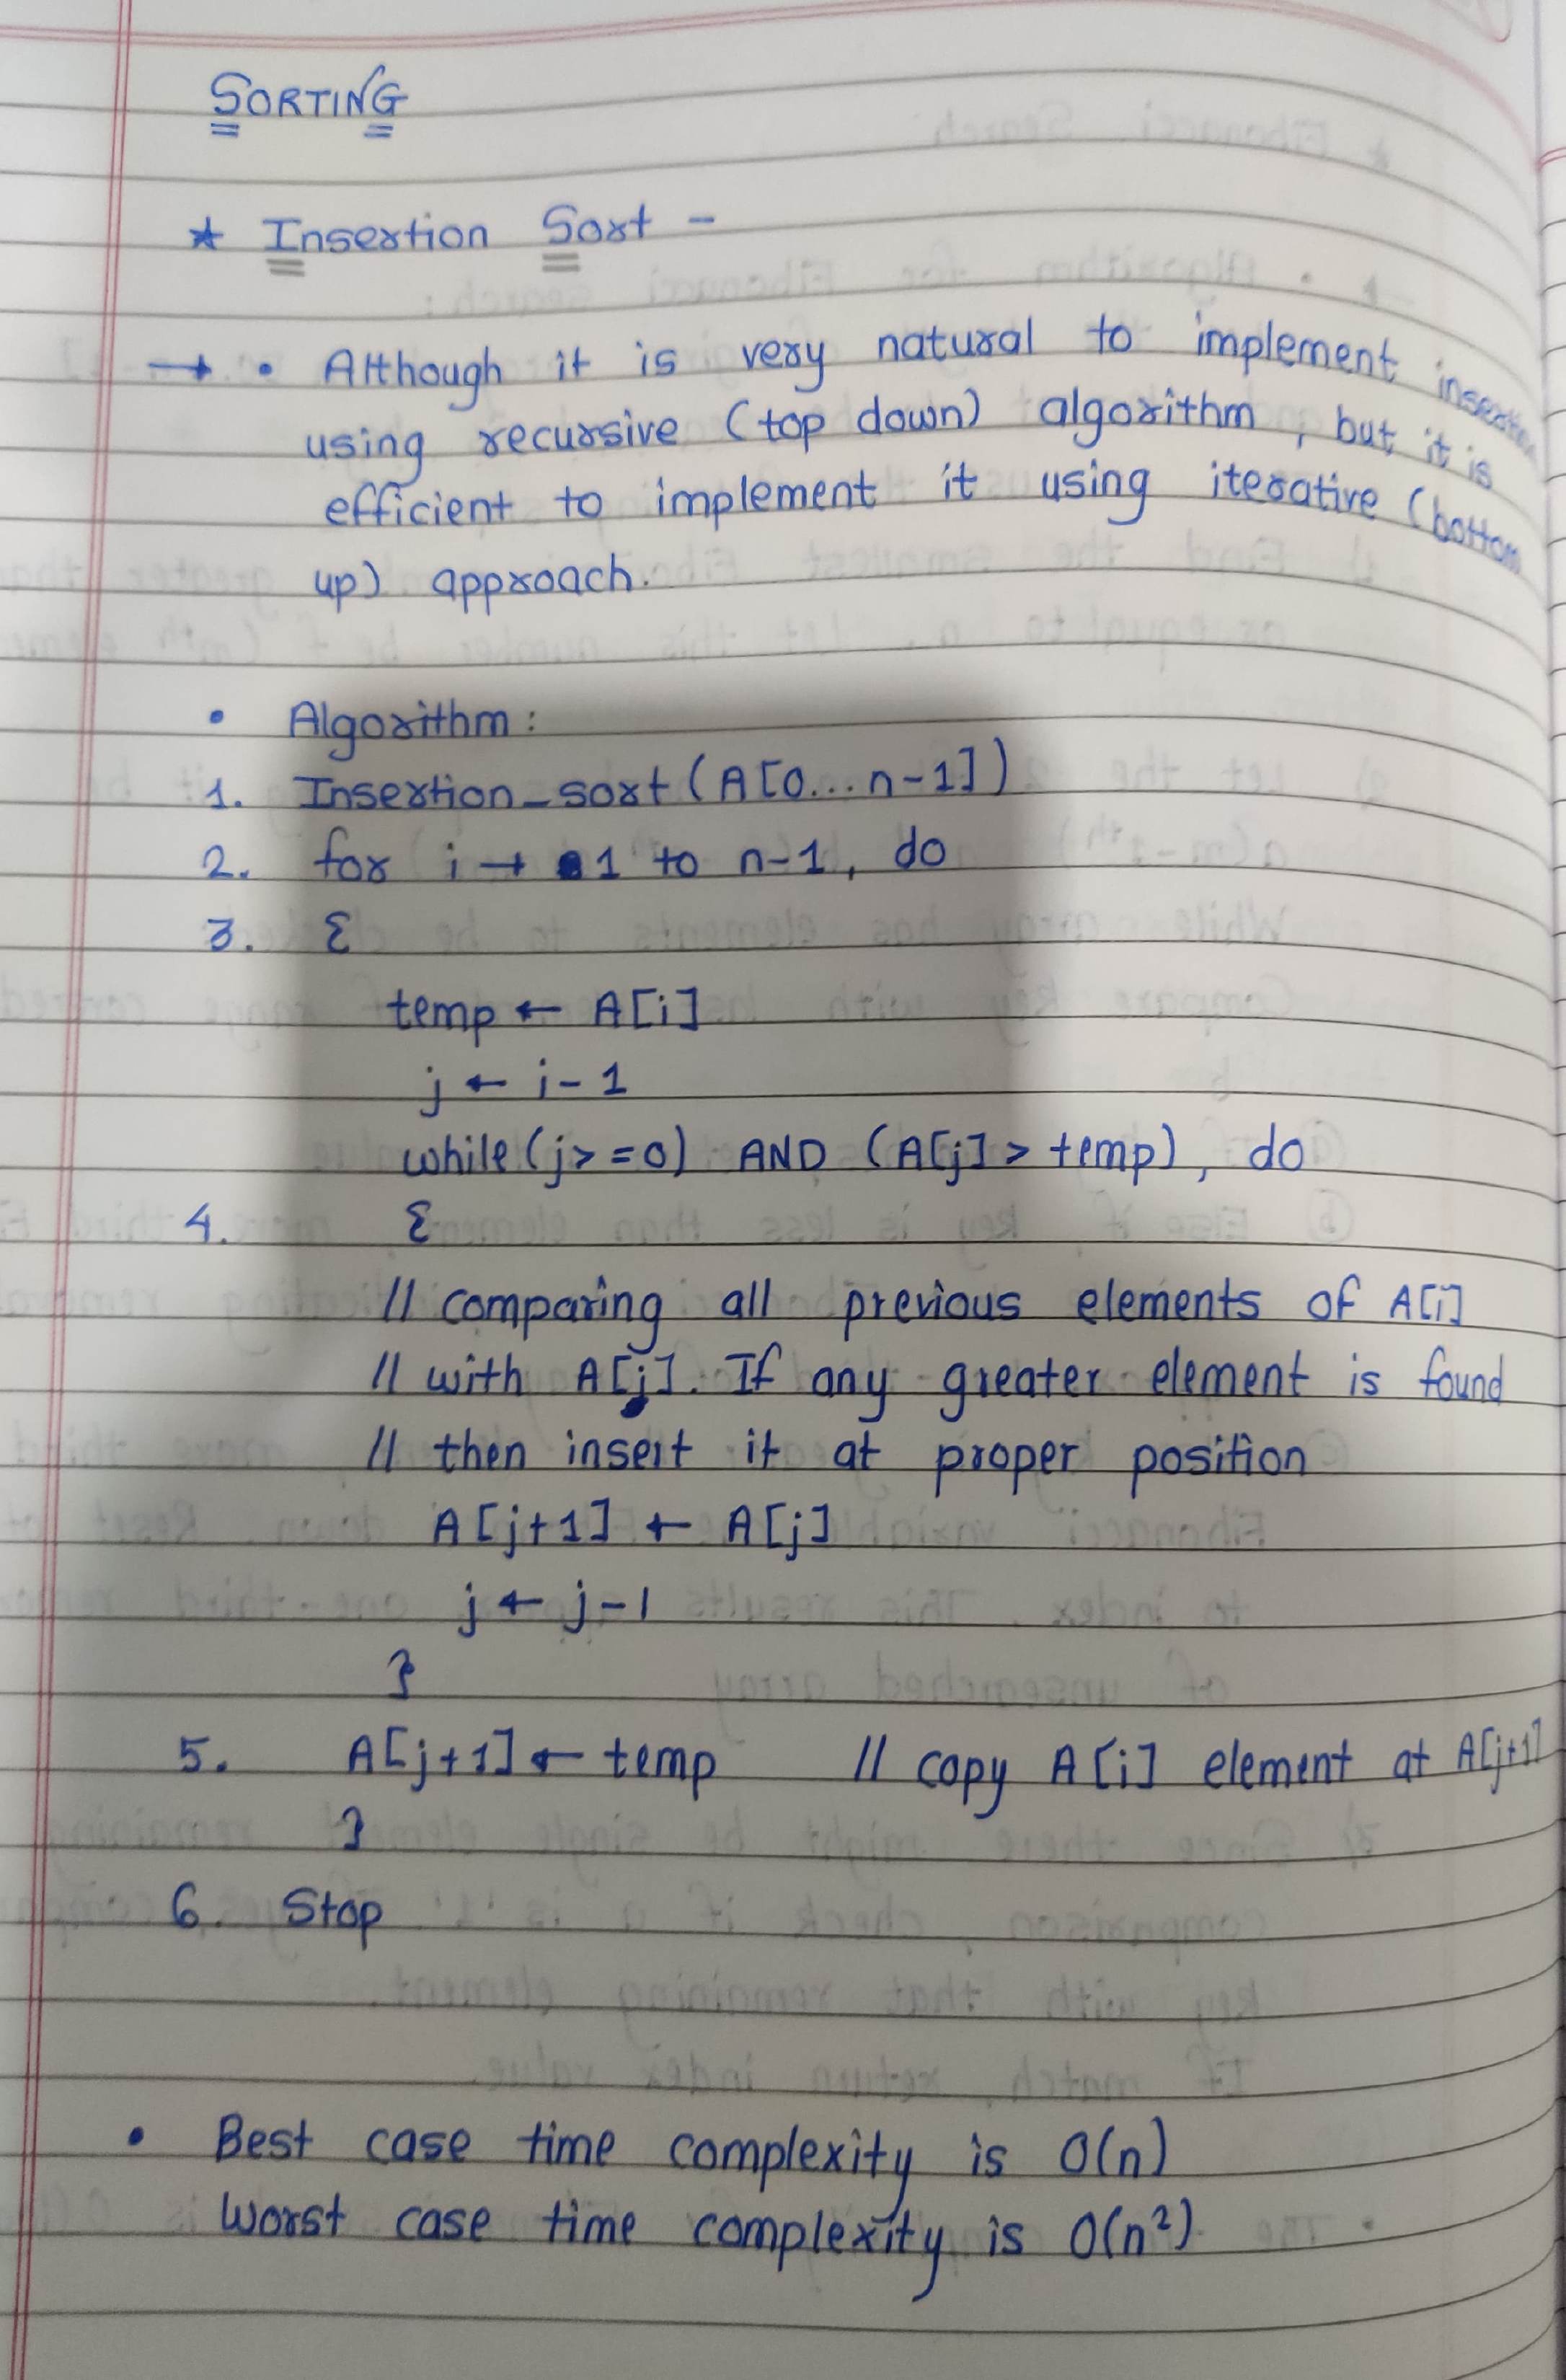 SORTING
★ Insertion Sort -
→ • Although it is very natural to implement insertion
using recursive (top down) algorithm, but it is
efficient to implement it using iterative (bottom
up) approach.
• Algorithm :
1. Insertion_sort (A[0...n-1])
2. for i → 1 to n-1, do
3. {
temp ← A[i]
j ← i-1
while (j>=0) AND (A[j] > temp), do
4. {
// comparing all previous elements of A[i]
// with A[j]. If any greater element is found
// then insert it at proper position
A[j+1] ← A[j]
j ← j-1
}
5. A[j+1] ← temp // copy A[i] element at A[j+1]
}
6. Stop
• Best case time complexity is O(n)
Worst case time complexity is O(n²)